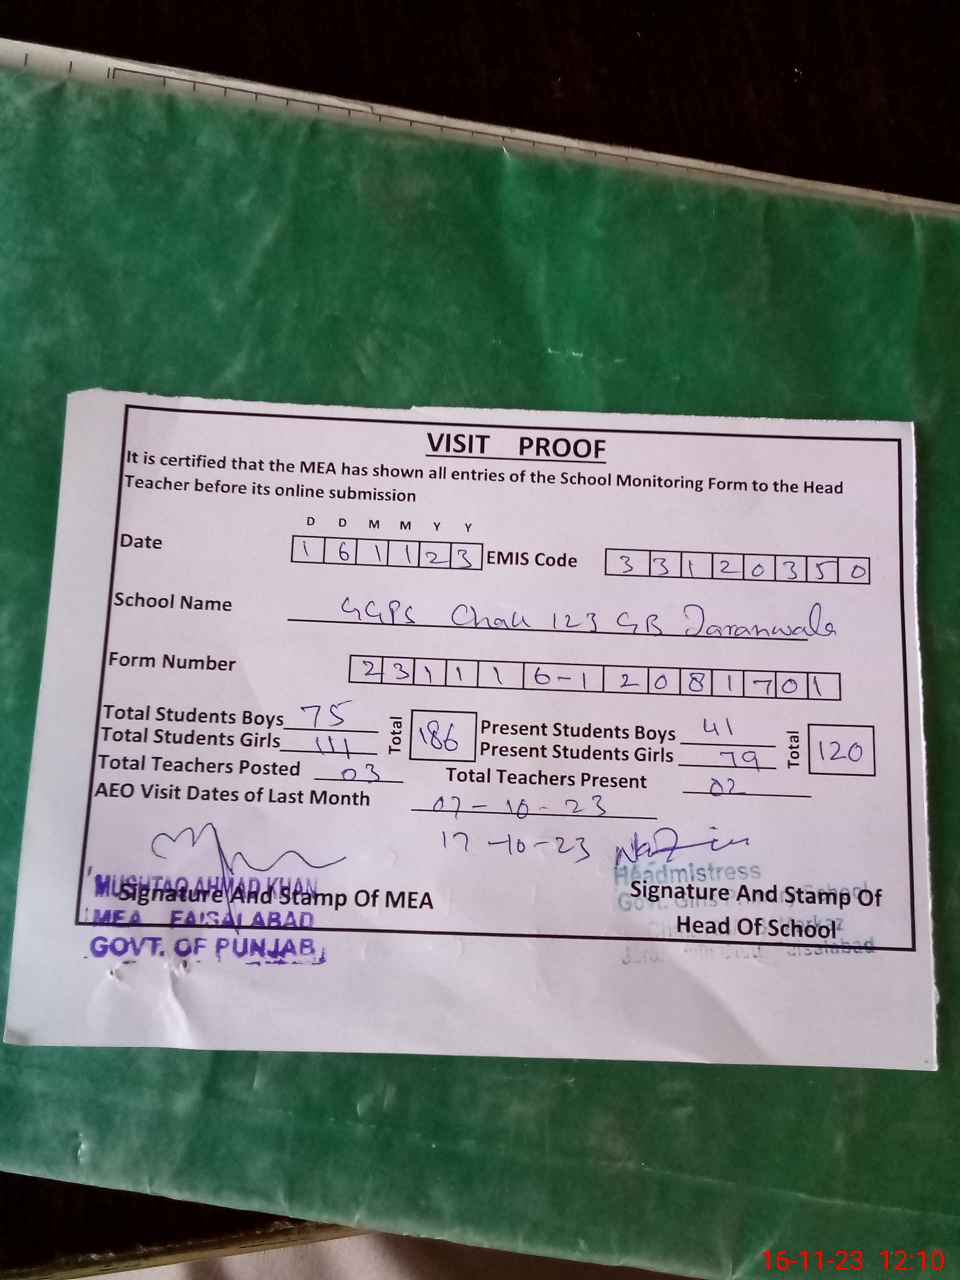 VISIT PROOF
It is certified that the MEA has shown all entries of the School Monitoring Form to the Head
Teacher before its online submission
D D M M Y Y
Date 1 6 1 1 2 3 EMIS Code 3 3 1 2 0 3 5 0
School Name GGPS Chak 123 GB Jaranwala
Form Number 2 3 1 1 1 6 - 1 2 0 8 1 7 0 1
Total Students Boys 75 Total 186 Present Students Boys 41 Total 120
Total Students Girls 111 Present Students Girls 79
Total Teachers Posted 03 Total Teachers Present 02
AEO Visit Dates of Last Month 07-10-23
17-10-23
MUSHTAQ AHMAD KHAN
Signature And Stamp Of MEA
MEA FAISALABAD
GOVT. OF PUNJAB
Headmistress
Signature And Stamp Of
Head Of School
Govt. Girls School
Markaz
Faisalabad
16-11-23 12:10